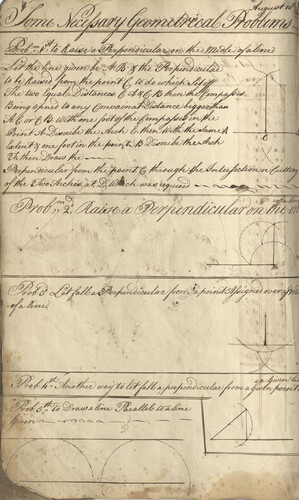 August 10
Some Necessary Geometrical Problems
Prob. 1st to Raise a Perpendicular on the Midle of a line
Let the line given be A B & the Perpendicular
to be Raised from the point C to do which Sett off
The two Equal Distances C A & C B then the Compasses
Being open'd to any Convenient Distance bigger than
A C or C B with one foot of the Compasses in the
Point A Describe the Arch E then with the same
Extent & one foot in the point B Describe the Arch
then Draw the
Perpendicular from the point C through the Intersection or Cutting
of the Two Arches at D Which was required
Prob 2nd Raise a Perpendicular on the
Prob 3d Let fall a Perpendicular from a point Assigned over
of a line
Prob 4th Another way to let fall a perpendicular from a Given point
Prob 5th to Draw a line Parallel to a line
Given